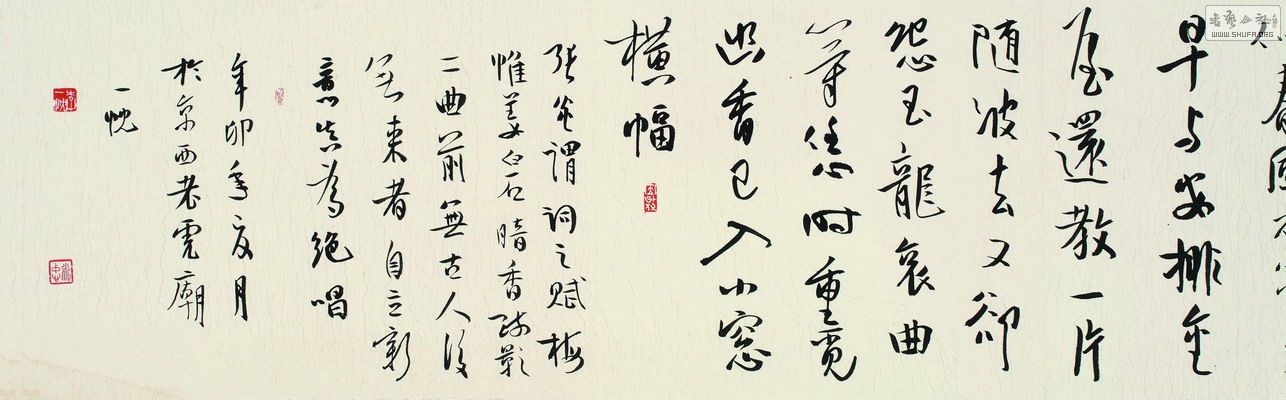 春風不
早与安排金
屋還教一片
随波去又却
怨玉龍哀曲
等恁時重覓
幽香已入小窓
横幅
張炎謂詞之賦梅
惟姜白石暗香疏影
二曲前無古人後
無来者自立新
意真為絶唱
辛卯年夏月
於京西老虎廟
一忱
WWW.SHUFA.ORG